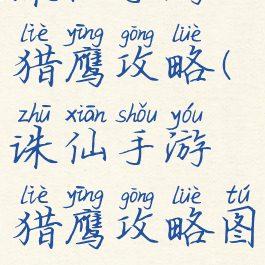 liè yīng gōng lüè
猎鹰攻略(
zhū xiān shǒu yóu
诛仙手游
liè yīng gōng lüè tú
猎鹰攻略图